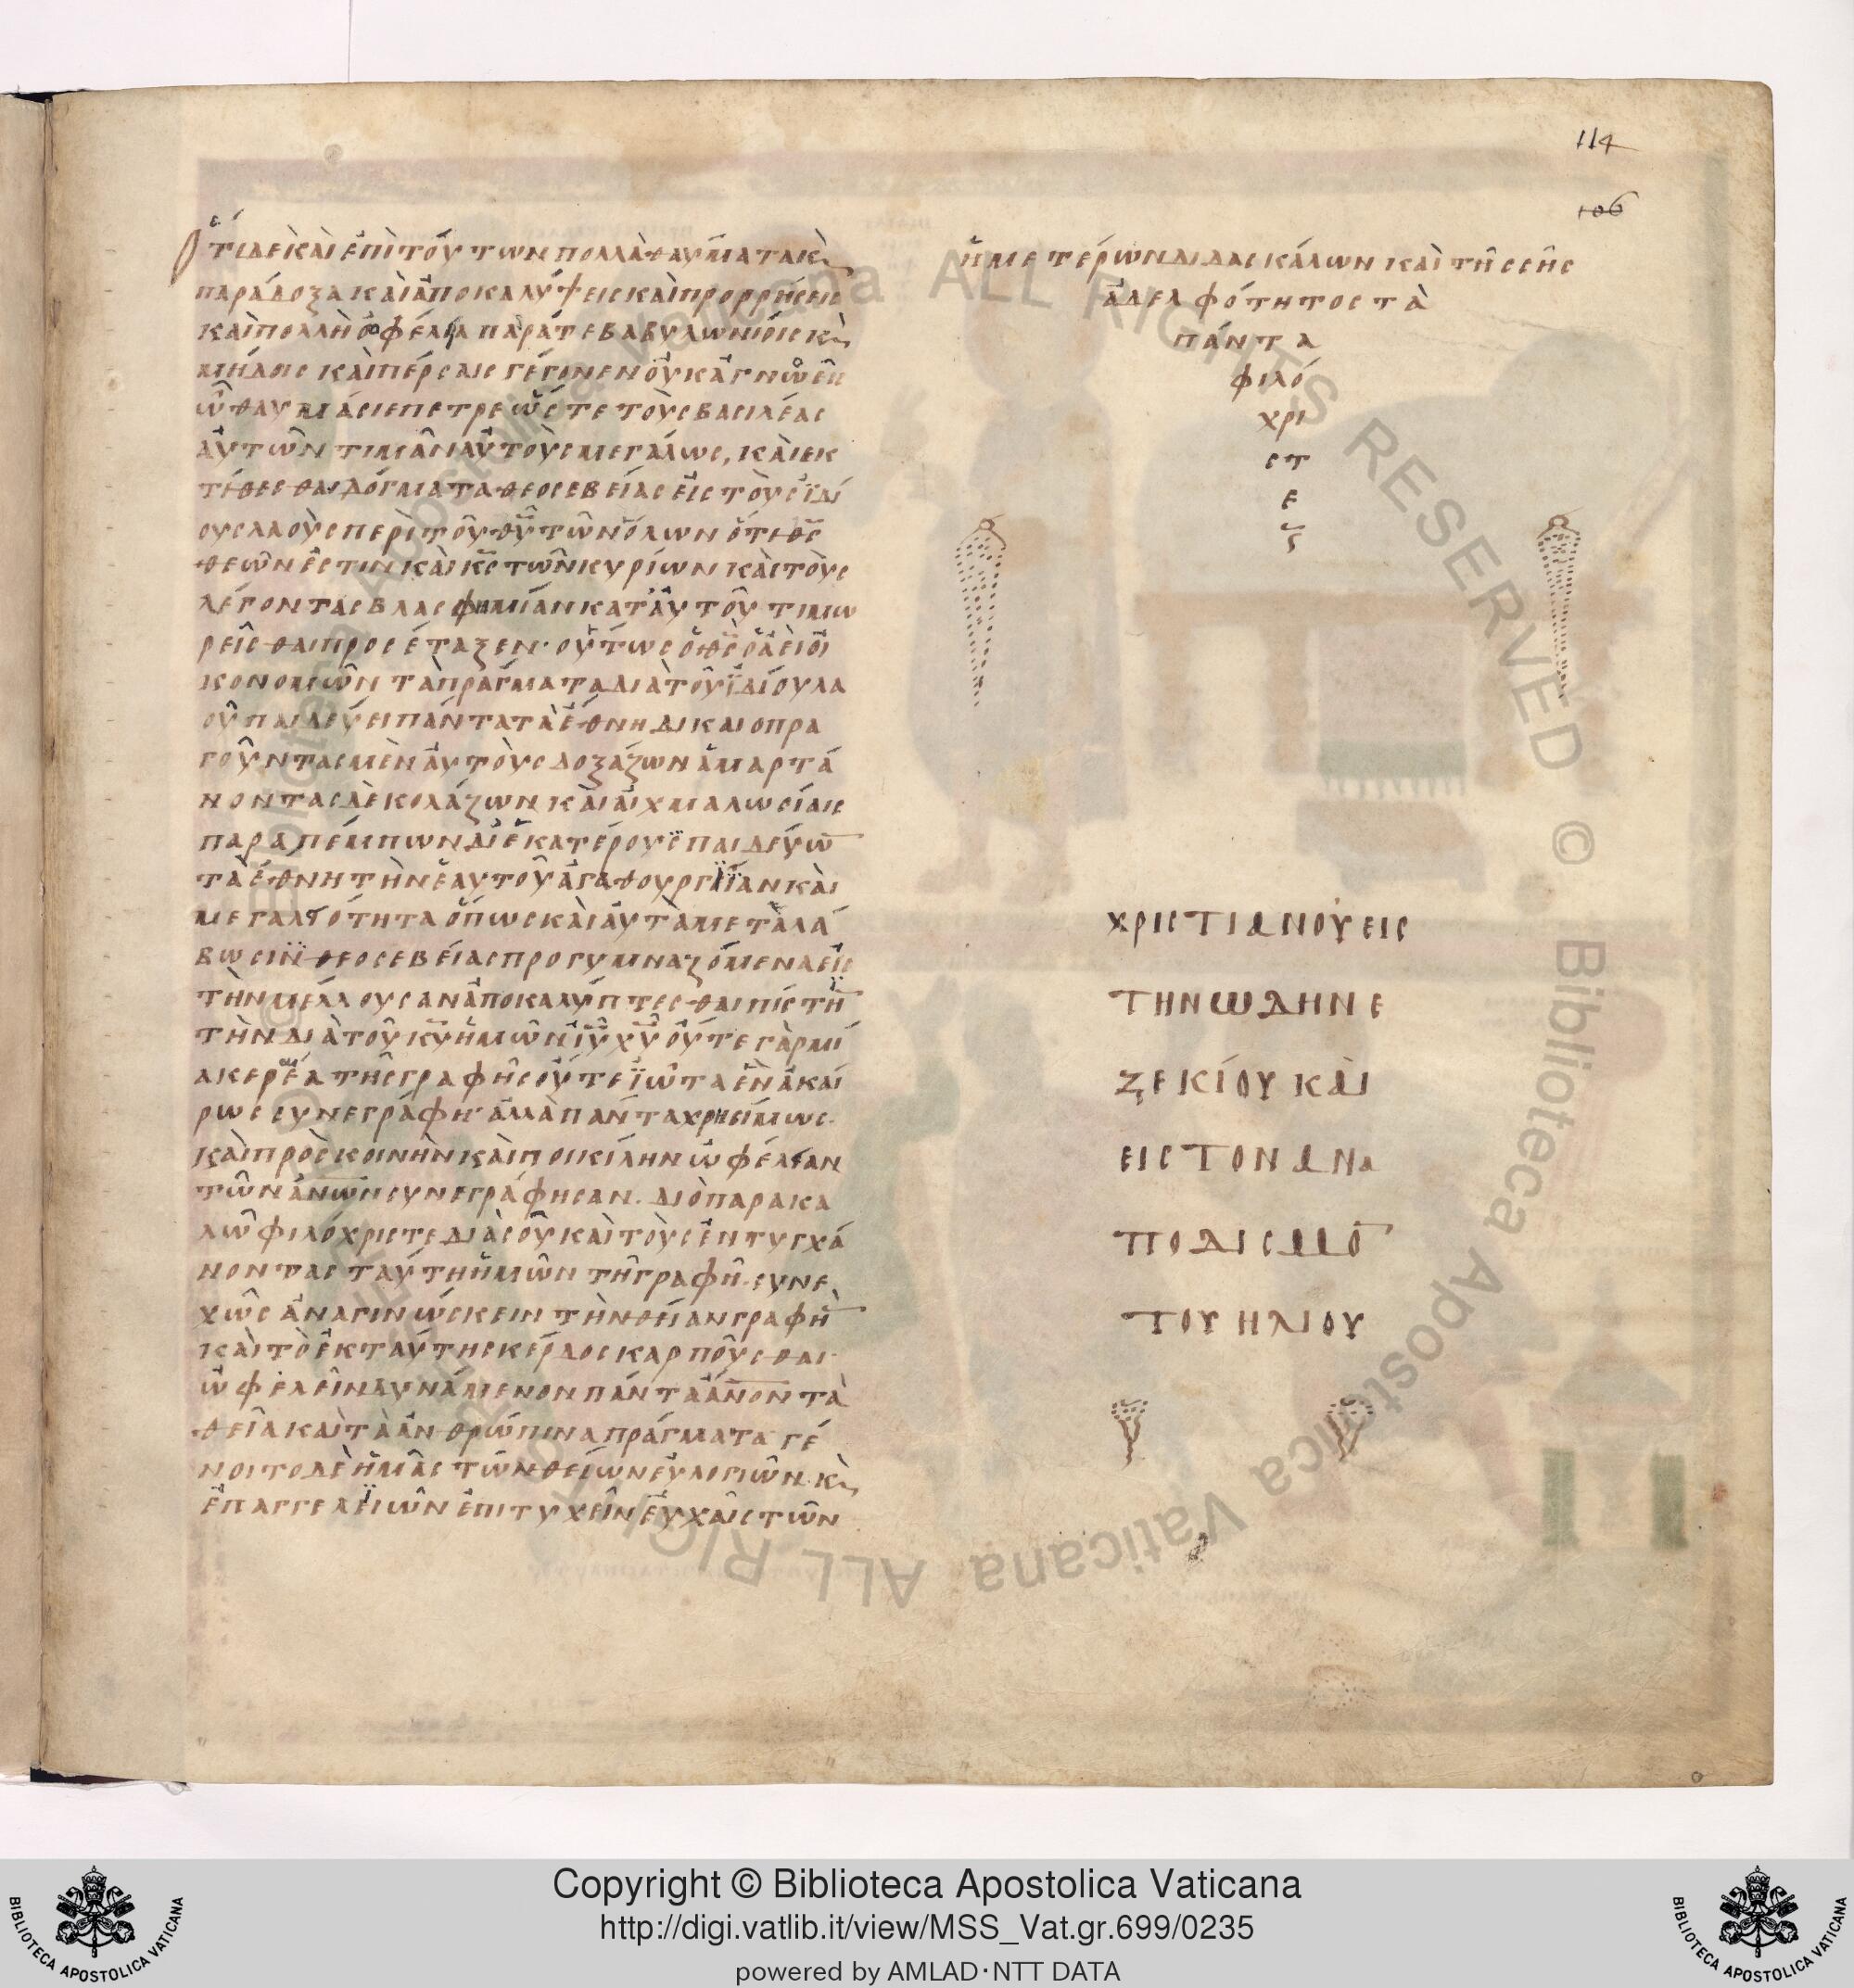 114
106
ἔτι δὲ καὶ ἐπὶ τούτων πολλὰ θαύματα κ(αὶ)
παράδοξα καὶ ἀποκαλύψεις καὶ προρρήσεις
καὶ πολλὴ ὀφέλεια παρά τε βαβυλωνίοις κ(αὶ)
μήδοις καὶ πέρσαις γέγονεν οὐκ ἀγνοῶ ἐπ
ὧ θαυμάσιε πέτρε ὥστε τοὺς βασιλέας
αὐτῶν τιμᾶν αὐτοὺς μεγάλως, καὶ ἐκ
τίθεσθαι δόγματα θεοσεβείας εἰς τοὺς ἰδί
ους λαοὺς περὶ τοῦ θῦ τῶν ὅλων ὅτι θς
θεῶν ἐστιν καὶ κς τῶν κυρίων καὶ τοὺς
λέγοντας βλασφημίαν κατ' αὐτοῦ τιμω
ρεῖσθαι προσέταξεν· οὕτως ὁ θς ὁ ἀεὶ οἰ
κονομῶν τὰ πράγματα διὰ τοῦ ἰδίου λα
οῦ παιδεύει πάντα τὰ ἔθνη δικαιοπρα
γοῦντας μὲν αὐτοὺς δοξάζων ἁμαρτά
νοντας δὲ κολάζων καὶ αἰχμαλωσίαις
παραπέμπων δι' ἑκατέρου παιδεύω
τὰ ἔθνη τὴν ἑαυτοῦ ἀγαθουργίαν καὶ
μεγαλιότητα ὅπως καὶ αὐτὰ μεταλά
βωσιν θεοσεβείας προγυμναζόμενα εἰς
τὴν μέλλουσαν ἀποκαλύπτεσθαι πίστη
τὴν διὰ τοῦ κυ ἡμῶν ιυ χυ οὔτε γὰρ μί
α κερέα τῆς γραφῆς οὔτε ἰῶτα ἓν ἀκαί
ρως συνεγράφη· ἀλλὰ πάντα χρησίμως.
καὶ πρὸς κοινὴν καὶ ποικίλην ὠφέλειαν
τῶν ἀνων συνεγράφησαν. διὸ παρακα
λῶ φιλόχριστε διὰ σοῦ καὶ τοὺς ἐντυγχά
νοντας ταύτη ἡμῶν τῆ γραφῆ. συνε
χῶς ἀναγινώσκειν τὴν θείαν γραφὴ
καὶ τὸ ἐκ ταύτης κέρδος καρποῦσθαι·
ὠφελεῖν δυνάμενον πάντα ἀνον τὰ
θεῖα καὶ τὰ ἀνθρώπινα πράγματα γέ
νοιτο δὲ ἡμᾶς τῶν θείων εὐλογιῶν κ(αὶ)
ἐπαγγελιῶν ἐπιτυχεῖν εὐχαῖς τῶν
ἡμετέρων διδασκάλων καὶ τῆς σῆς
ἀδελφότητος τὰ
πάντα
φιλό
χρι
στ
ε
ς
χριστιανοῦ εις
την ωδην ε
ζεκίου καὶ
εις τον ανα
ποδισμὸ
του ηλιου
© Biblioteca Apostolica Vaticana ALL RIGHTS RESERVED © Biblioteca Apostolica Vaticana ALL RIGHTS RESERVED
Copyright © Biblioteca Apostolica Vaticana
http://digi.vatlib.it/view/MSS_Vat.gr.699/0235
powered by AMLAD·NTT DATA
BIBLIOTECA APOSTOLICA VATICANA
BIBLIOTECA APOSTOLICA VATICANA